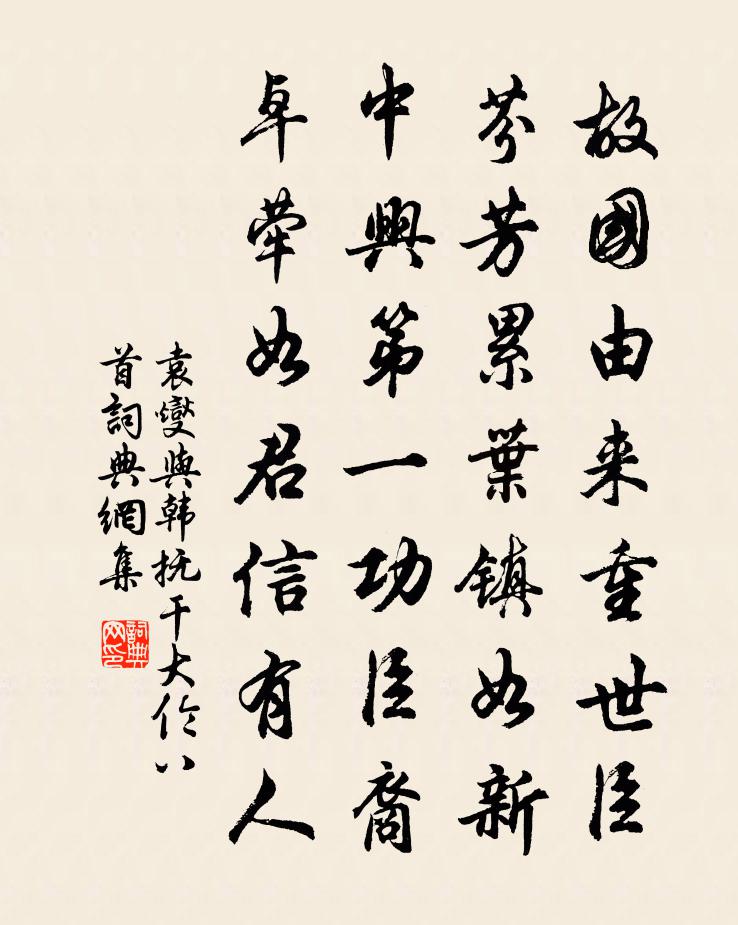 故國由来重世臣
芬芳累葉鎮如新
中興第一功臣裔
卓荦如君信有人
袁燮與韩抚干大伦八
首詞典網集
詞典
网印